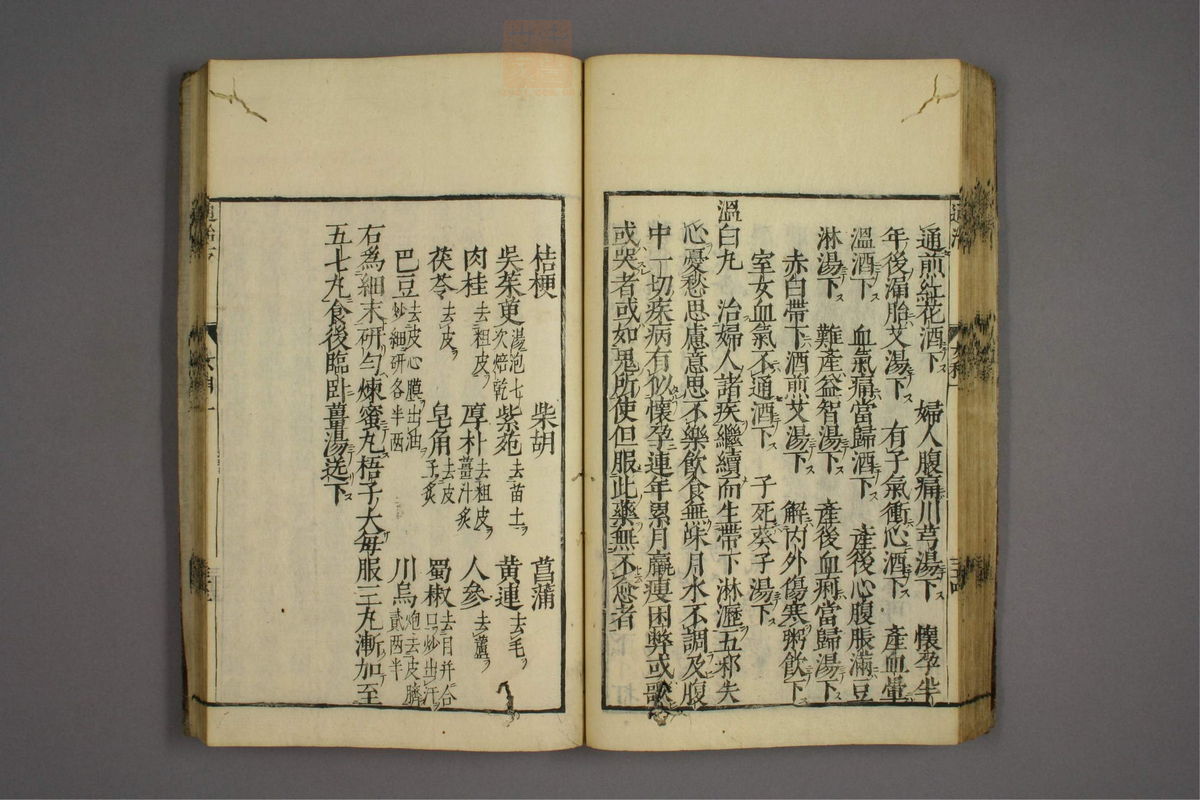 通煎紅花酒下　婦人腹痛川芎湯下　懷孕半
年後漏胎艾湯下　有子氣衝心酒下　產血暈
溫酒下　血氣痛當歸酒下　產後心腹脹滿豆
淋湯下　難產益智湯下　產後血痢當歸湯下
赤白帶下酒煎艾湯下　解內外傷寒粥飲下
室女血氣不通酒下　子死葵子湯下
溫白丸　治婦人諸疾繼續而生帶下淋瀝五邪失
心憂愁思慮意思不樂飲食無味月水不調及腹
中一切疾病有似懷孕連年累月羸瘦困弊或歌
或哭者或如鬼所使但服此藥無不愈者
桔梗　柴胡　菖蒲
吳茱萸湯泡七次焙乾　紫菀去苗土　黃連去毛
肉桂去粗皮　厚朴去粗皮薑汁炙　人參去蘆
茯苓去皮　皂角去皮子炙　蜀椒去目并合口炒出汗
巴豆去皮心膜出油炒細研各半兩　川烏炮去皮臍貳兩半
右為細末研勻煉蜜丸梧子大每服三丸漸加至
五七丸食後臨臥薑湯送下